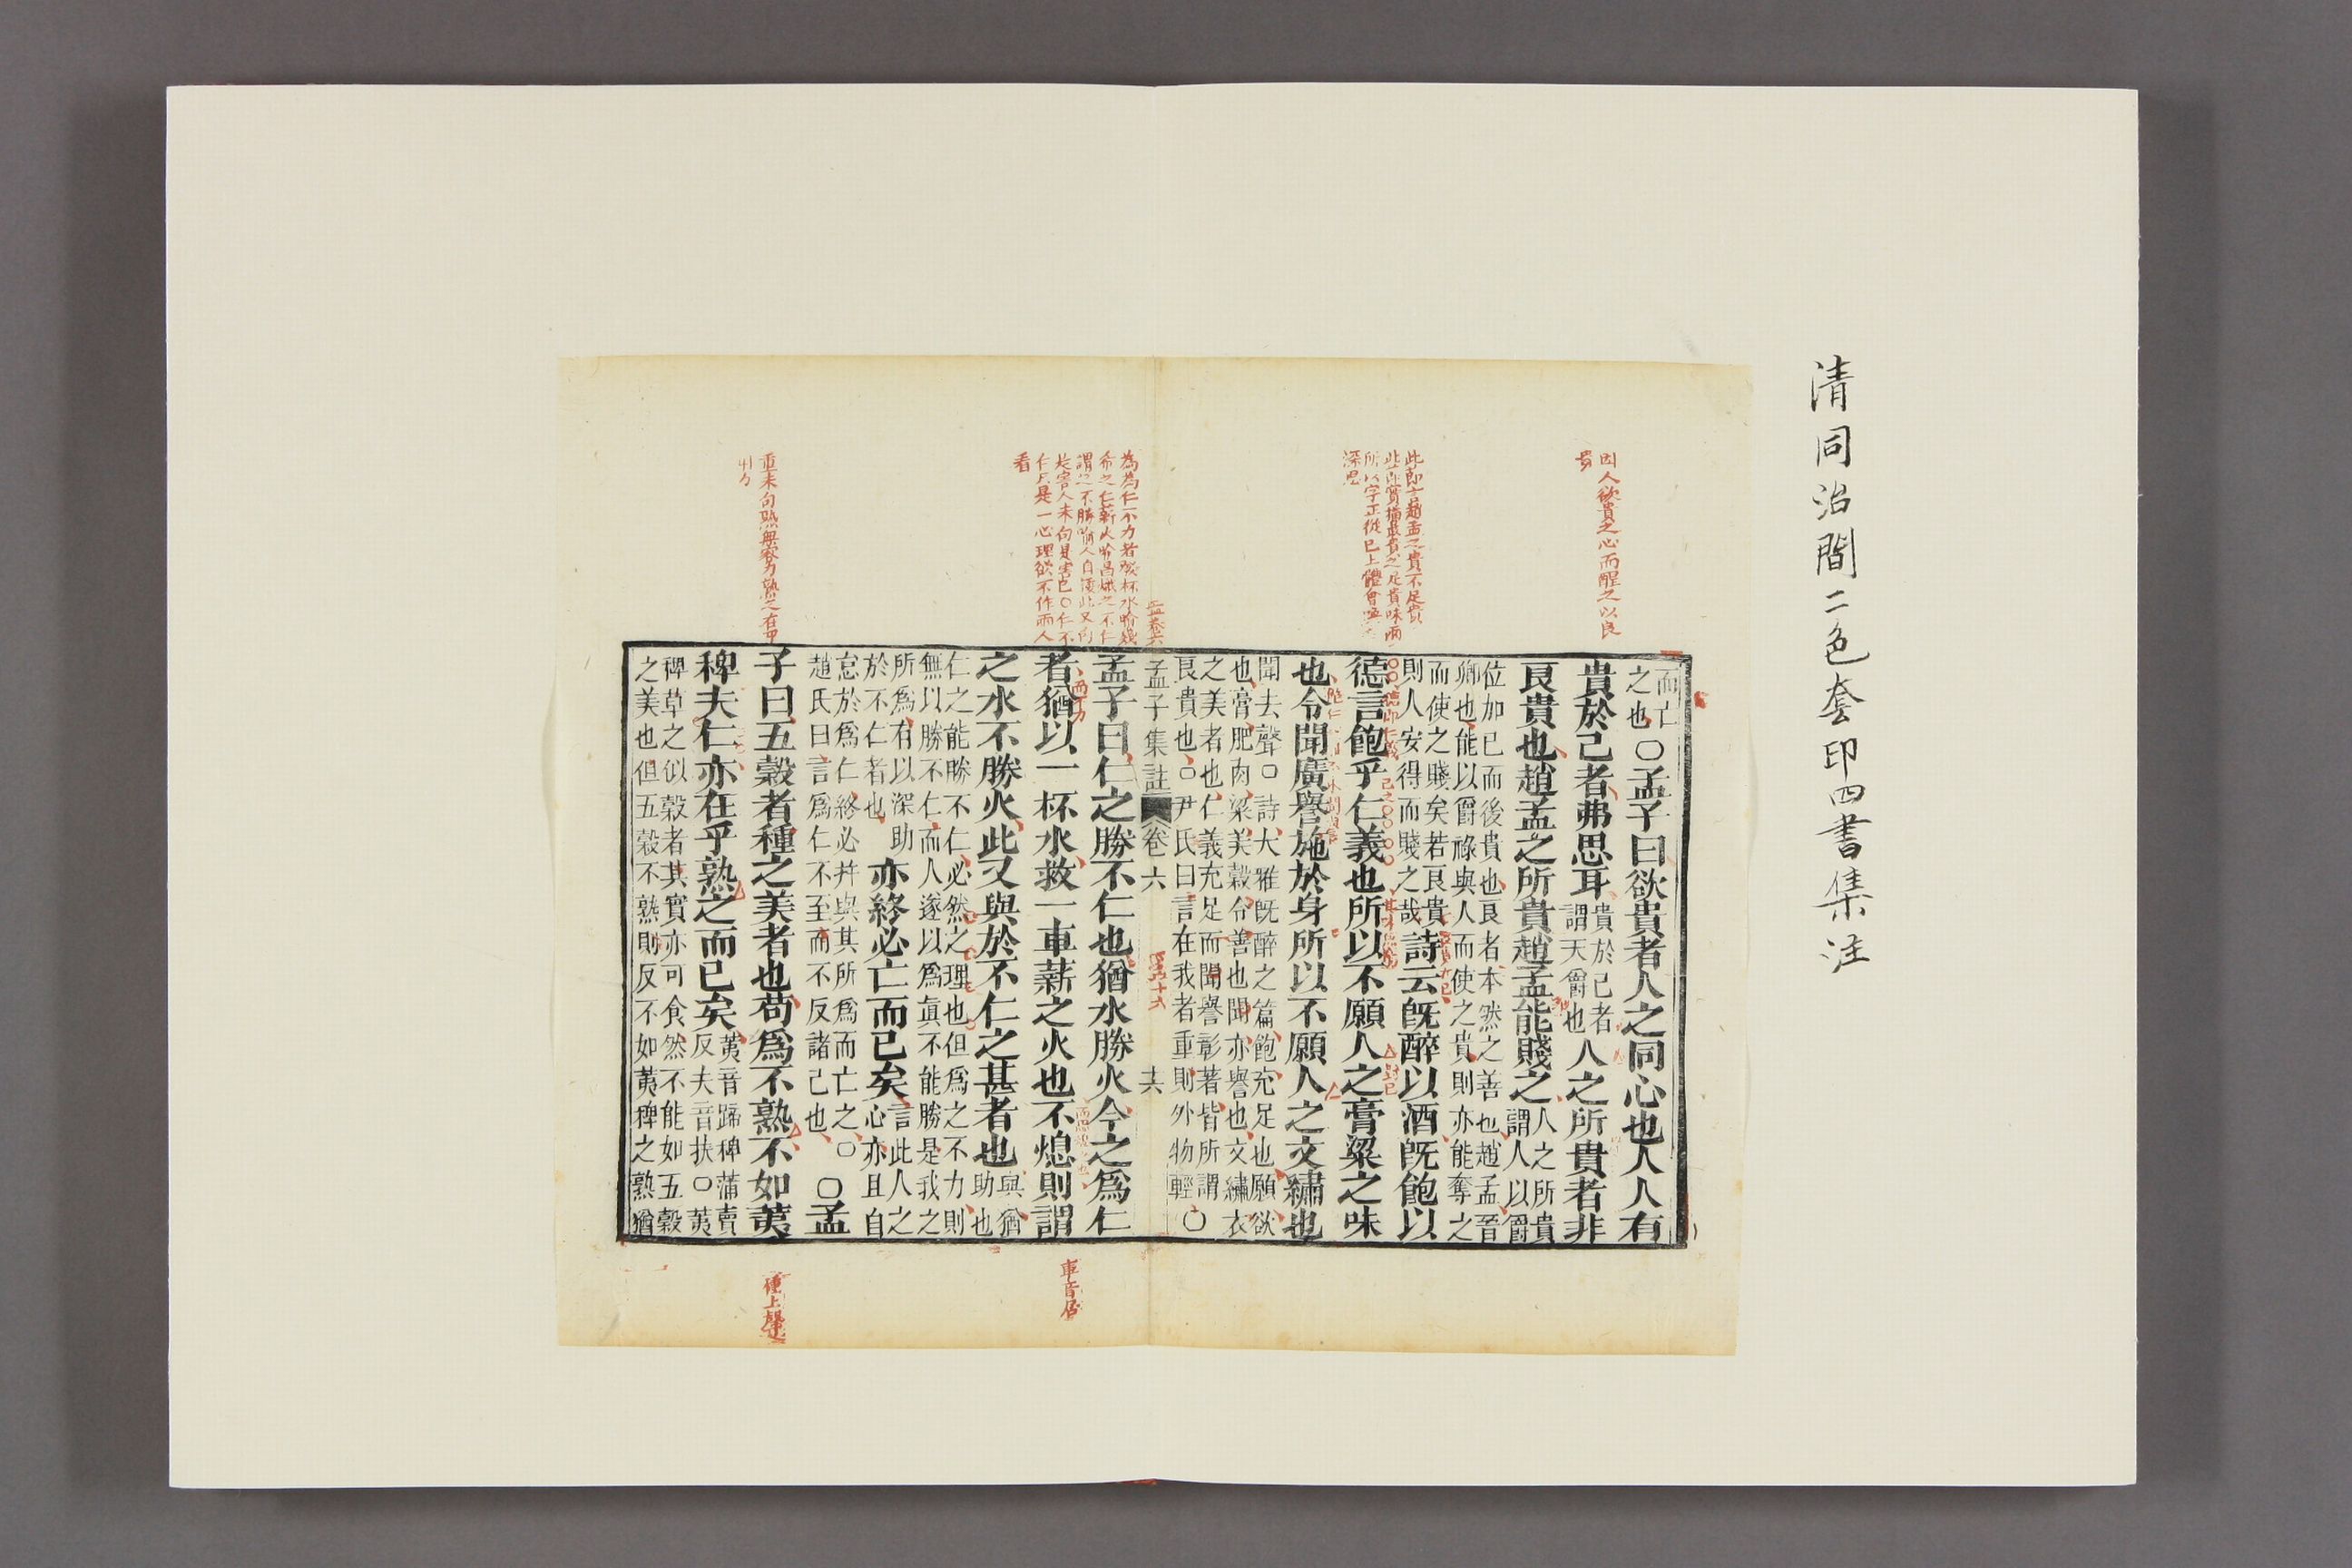 清同治間二色套印四書集注
因人欲貴之心而醒之以良
貴
此即言趙孟之貴不足貴
深思
看
孟卷六
而亡
之也〇孟子曰欲貴者人之同心也人人有
貴於己者弗思耳貴於己者謂天爵也人之所貴者非
良貴也趙孟之所貴趙孟能賤之人之所貴謂人以爵
位加己而後貴也良者本然之善也趙孟晉
卿也能以爵祿與人而使之貴則亦能奪之
而使之賤矣若良貴
則人安得而賤之哉詩云既醉以酒既飽以
德言飽乎仁義也所以不願人之膏粱之味
也令聞廣譽施於身所以不願人之文繡也
聞去聲〇詩大雅既醉之篇飽充足也願欲
也膏肥肉粱美穀令善也聞亦譽也文繡衣
之美者也仁義充足而聞譽彰著皆所謂
良貴也〇尹氏曰言在我者重則外物輕〇
孟子集註 卷六 六
孟子曰仁之勝不仁也猶水勝火今之爲仁
者猶以一杯水救一車薪之火也不熄則謂
之水不勝火此又與於不仁之甚者也與猶助也
仁之能勝不仁必然之理也但爲之不力則
無以勝不仁而人遂以爲眞不能勝是我之
所爲有以深助
於不仁者也亦終必亡而已矣言此人之心亦且自
怠於爲仁終必幷與其所爲而亡之〇
趙氏曰言爲仁不至而不反諸己也〇孟
子曰五穀者種之美者也苟爲不熟不如荑
稗夫仁亦在乎熟之而已矣荑音蹄稗蒲賣反夫音扶〇荑
稗草之似穀者其實亦可食然不能如五穀
之美也但五穀不熟則反不如荑稗之熟猶
車音居
種上聲